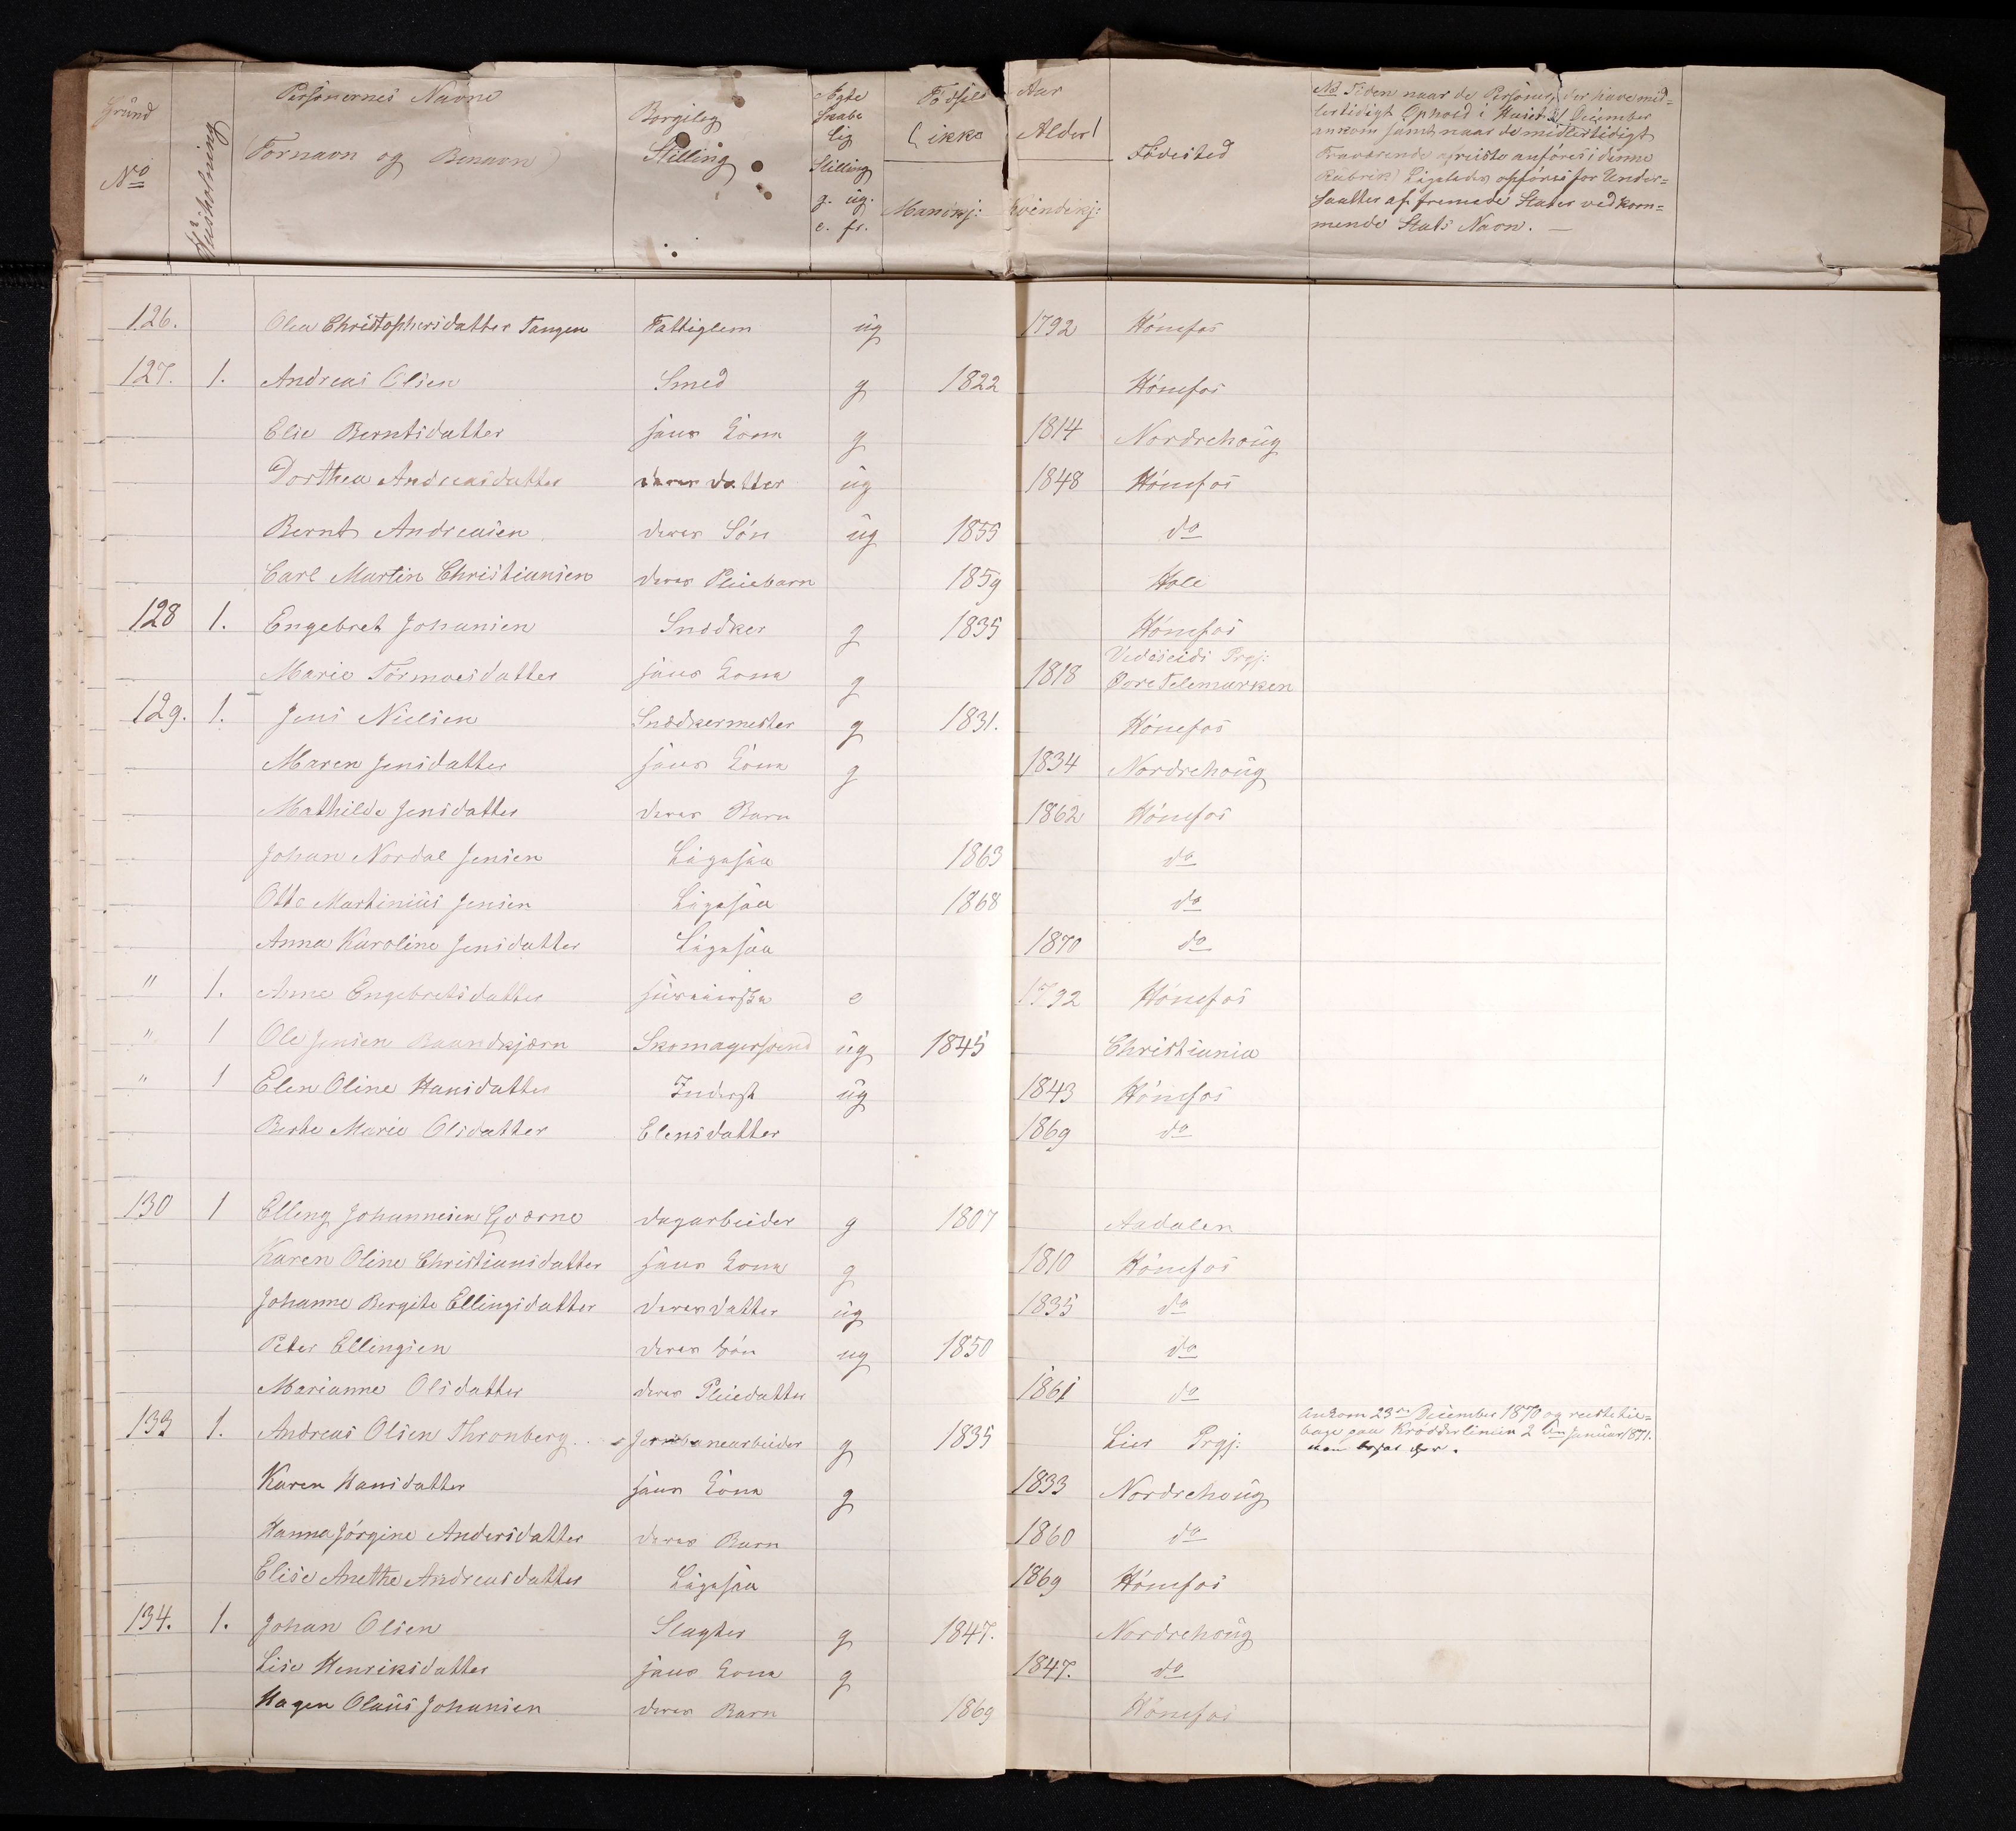 Grund
No
Husholdning
Personernes Navne
(Fornavn og Benavn)
Borgileg
Stilling
Ægte
skabe
lig
Stilling
g. ug.
e. fr.
Fødsels Aar
(ikke Alder)
Mandkj: Kvindekj:
Födested
NB Tiden naar de Personer, der have mid=
lertidigt Ophold i Huset 31 December
ankom samt naar de midlertidigt
Fraværende afreiste anføres i denne
Rubrik. Ligeledes opføres for Under=
saatter af fremede Stater vedkom=
mende Stats Navn. —
126. Olea Christophersdatter Tangen Fattiglem ug 1792 Hönefos
127. 1. Andreas Olsen Smed g 1822 Hönefos
Elie Berntsdatter hans Kona g 1814 Nordrehoug
Dorthea Andreasdatter deres datter ug 1848 Hönefos
Bernt Andreasen deres Sön ug 1855 do
Carl Martin Christiansen deres Pleiebarn 1859 Hole
128 1. Engebret Johansen Snedker g 1835 Hönefos
Marie Tormoesdatter hans Kona g 1818 Vidöseids Prgj: Övre Telemarken
129. 1. Jens Nielsen Snedkermester g 1831. Hönefos
Maren Jensdatter hans Kona g 1834 Nordrehoug
Mathilde Jensdatter deres Barn 1862 Hönefos
Johan Nordal Jensen Ligesaa 1863 do
Otto Martinius Jensen Ligesaa 1868 do
Anna Karoline Jensdatter Ligesaa 1870 do
" 1. Anne Engebretsdatter e 1792 Hönefos
" 1 Ole Jensen Raandkjærn Skomagersvend ug 1845 Christiania
" 1 Elen Oline Hansdatter Inderst ug 1843 Hönefos
Berte Marie Olsdatter Elensdatter 1869 do
130 1 Elling Johannesen Gværne dagarbeider g 1807 Aadalen
Karen Oline Christiansdatter hans Kona g 1810 Hönefos
Johanne Bergite Ellingsdatter deres datter ug 1835 do
Peter Ellingsen deres Sön ug 1850 do
Marianne Olsdatter deres Pleiedatter 1861 do
133 1. Andreas Olsen Thronberg Jernbanearbeider g 1835 Lier Prgj: Ankom 23de December 1870 og reiste tilba=
bage paa Kröderlinien 2den Januar 1871.
Karen Hansdatter hans Kona g 1833 Nordrehoug
Hanna Jörgine Andersdatter deres Barn 1860 do
Elise Anethe Andreasdatter Ligesaa 1869 Hönefos
134. 1. Johan Olsen Slagter g 1847. Nordrehoug
Lise Henriksdatter hans Kona g 1847. do
Hagen Olaus Johansen deres Barn 1869 Hönefos